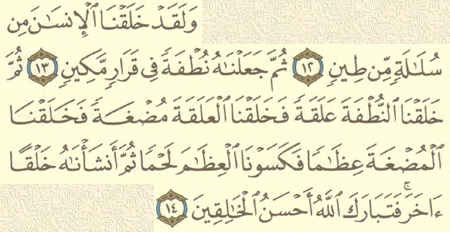 وَلَقَدْ خَلَقْنَا ٱلْإِنسَٰنَ مِن
سُلَٰلَةٍ مِّن طِينٍ ١٢ ثُمَّ جَعَلْنَٰهُ نُطْفَةً فِى قَرَارٍ مَّكِينٍ ١٣ ثُمَّ
خَلَقْنَا ٱلنُّطْفَةَ عَلَقَةً فَخَلَقْنَا ٱلْعَلَقَةَ مُضْغَةً فَخَلَقْنَا
ٱلْمُضْغَةَ عِظَٰمًا فَكَسَوْنَا ٱلْعِظَٰمَ لَحْمًا ثُمَّ أَنشَأْنَٰهُ خَلْقًا
ءَاخَرَ ۚ فَتَبَارَكَ ٱللَّهُ أَحْسَنُ ٱلْخَٰلِقِينَ ١٤